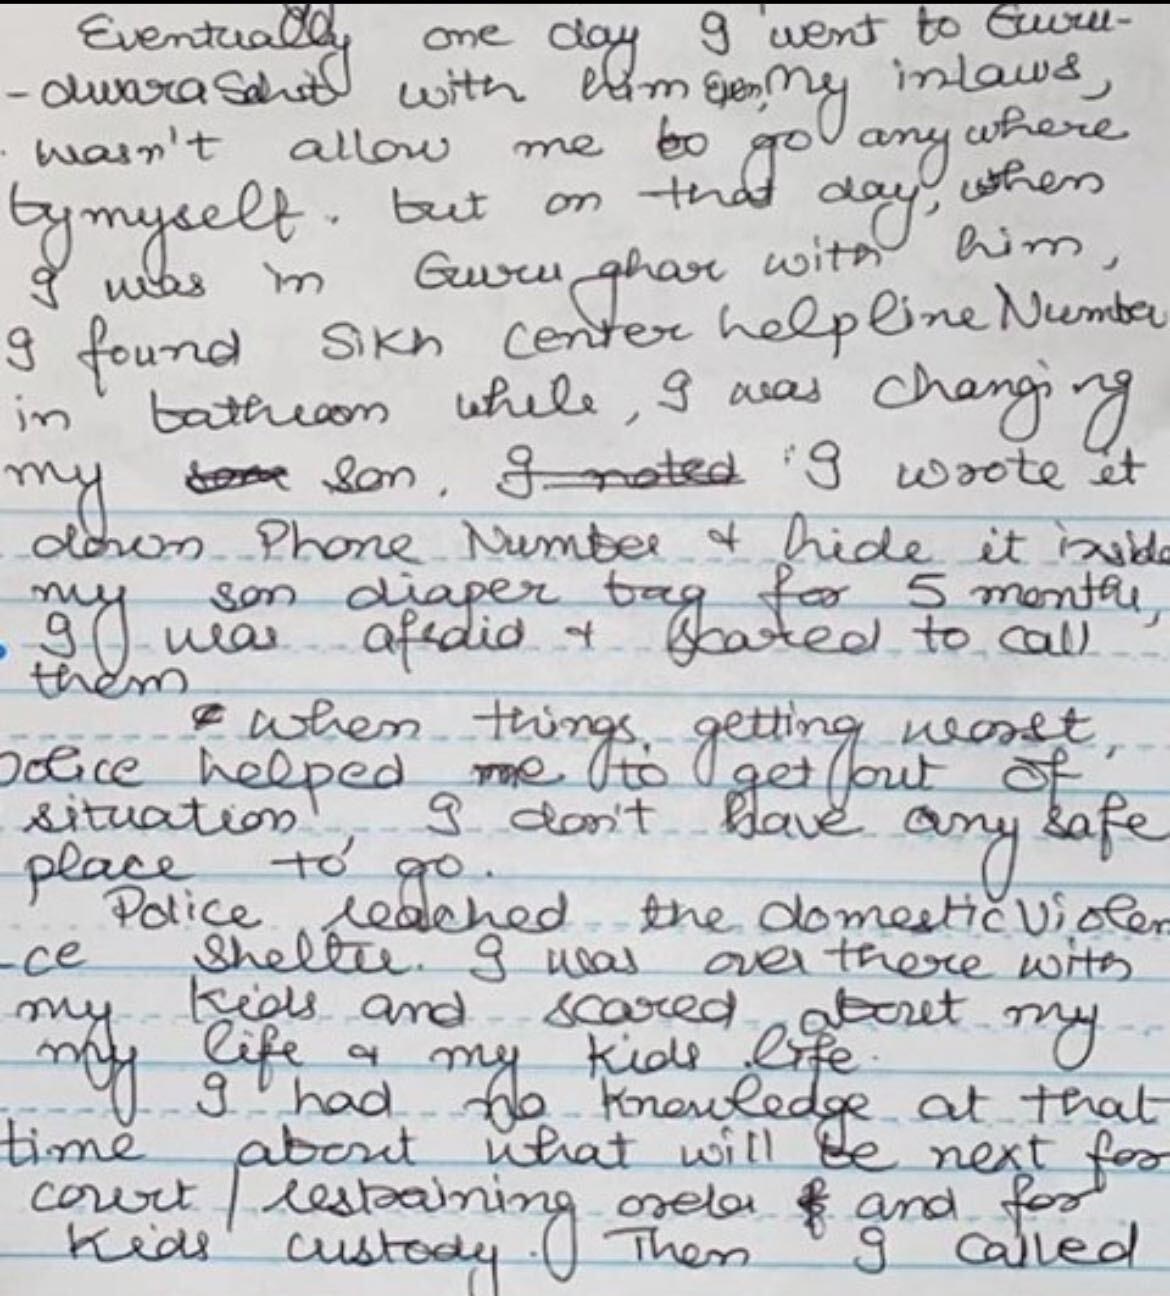 Eventually one day I went to Guru-
-dwara Sahib with him Even, My inlaws,
wasn't allow me to go anywhere
by myself. but on that day, when
I was in Guru ghar with him,
I found Sikh Center helpline Number
in bathroom while, I was changing
my son. I noted I wrote it
down Phone Number & hide it inside
my son diaper bag for 5 months,
I was afraid & scared to call
them
when things getting worst,
police helped me to get out of
situation, I don't have any safe
place to go.
Police reached the domestic Violen
-ce Shelter. I was over there with
my kids and scared about my
my life & my kids life.
I had no knowledge at that
time about what will be next for
court / restraining order and for
kids custody. Then I called